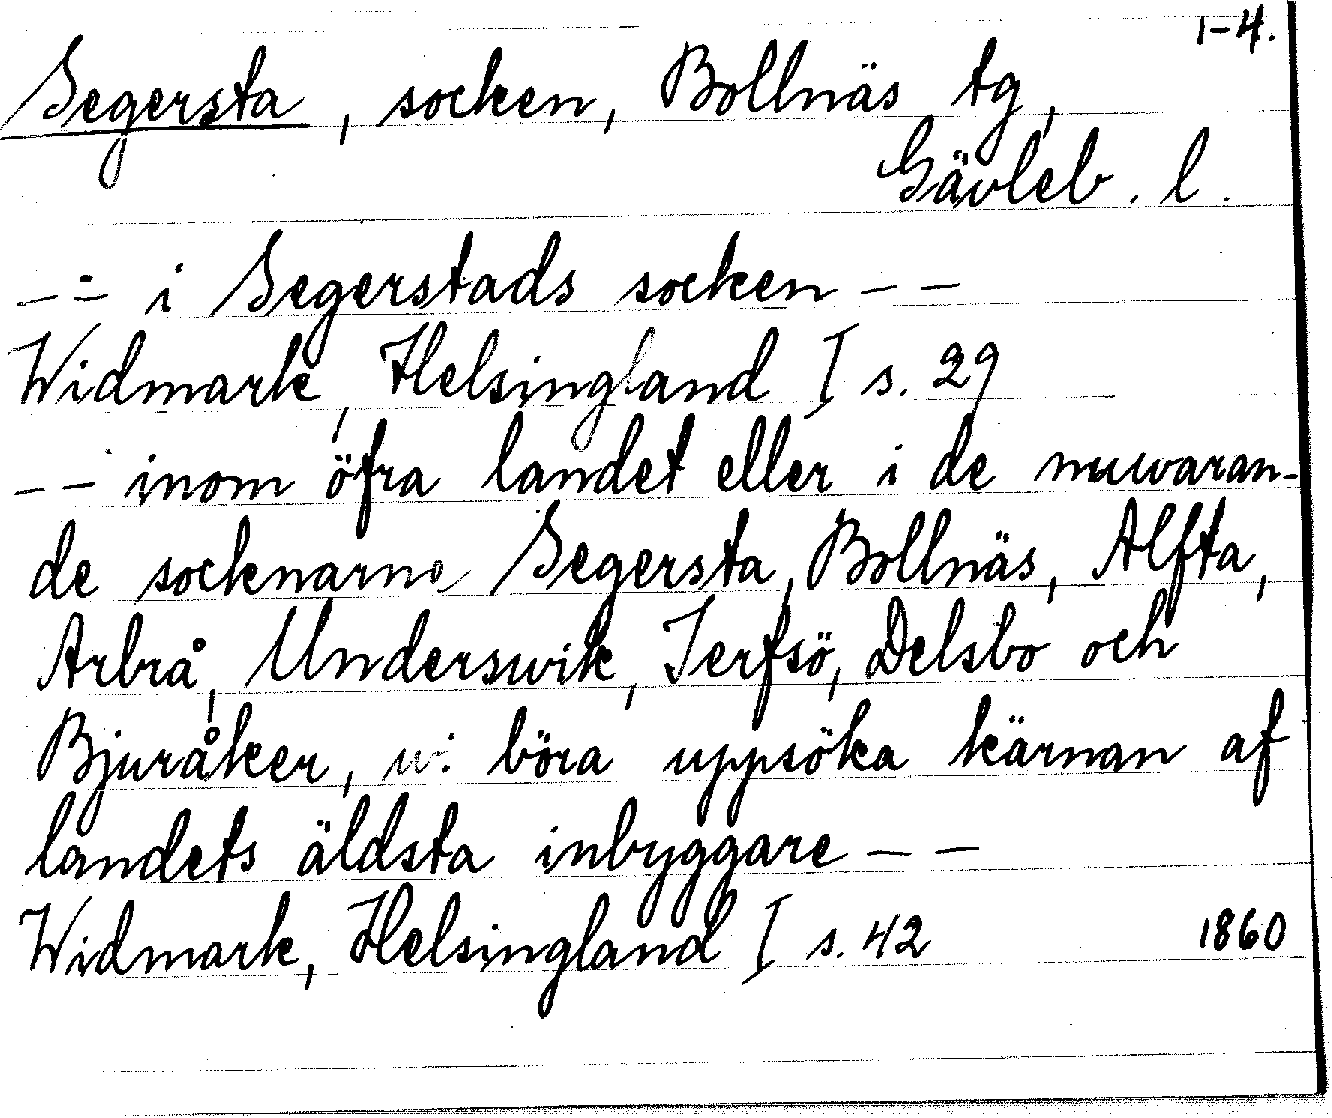 1-4.
Segersta, socken, Bollnäs tg,
Gävleb. l.
-- i Segerstads socken --
Widmark, Helsingland I s. 29
-- inom öfra landet eller i de nuwaran-
de socknarne Segersta, Bollnäs, Alfta,
Arbrå, Underswik, Jerfsö, Delsbo och
Bjuråker, wi böra uppsöka kärnan af
landets äldsta inbyggare --
Widmark, Helsingland I s. 42 1860